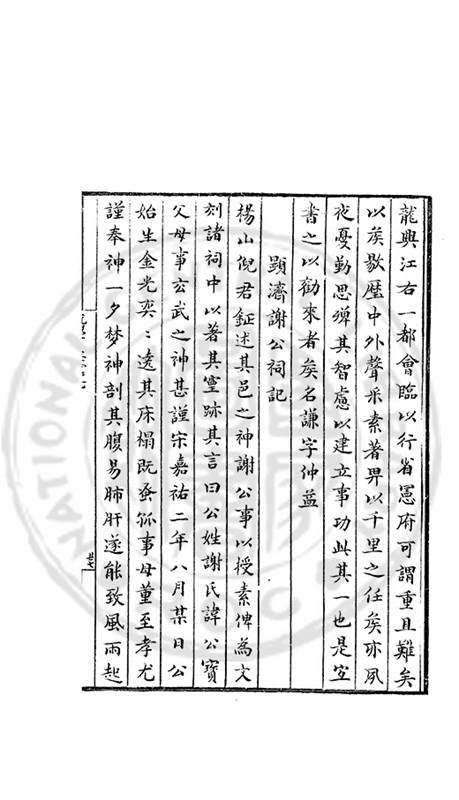 龍興江右一都會臨以行省憲府可謂重且難矣
以矦敭歷中外聲采素著畀以千里之任矦亦夙
夜憂勤思殫其智慮以建立事功此其一也是宜
書之以勸來者矦名謙字仲益
顯濟謝公祠記
楊山倪君鉦述其邑之神謝公事以授素俾為文
刻諸祠中以著其靈跡其言曰公姓謝氏諱公寶
父母事玄武之神甚謹宋嘉祐二年八月某日公
始生金光奕〻遶其床榻既蚤孤事母董至孝尤
謹奉神一夕梦神剖其腹易肺肝遂能致風雨起